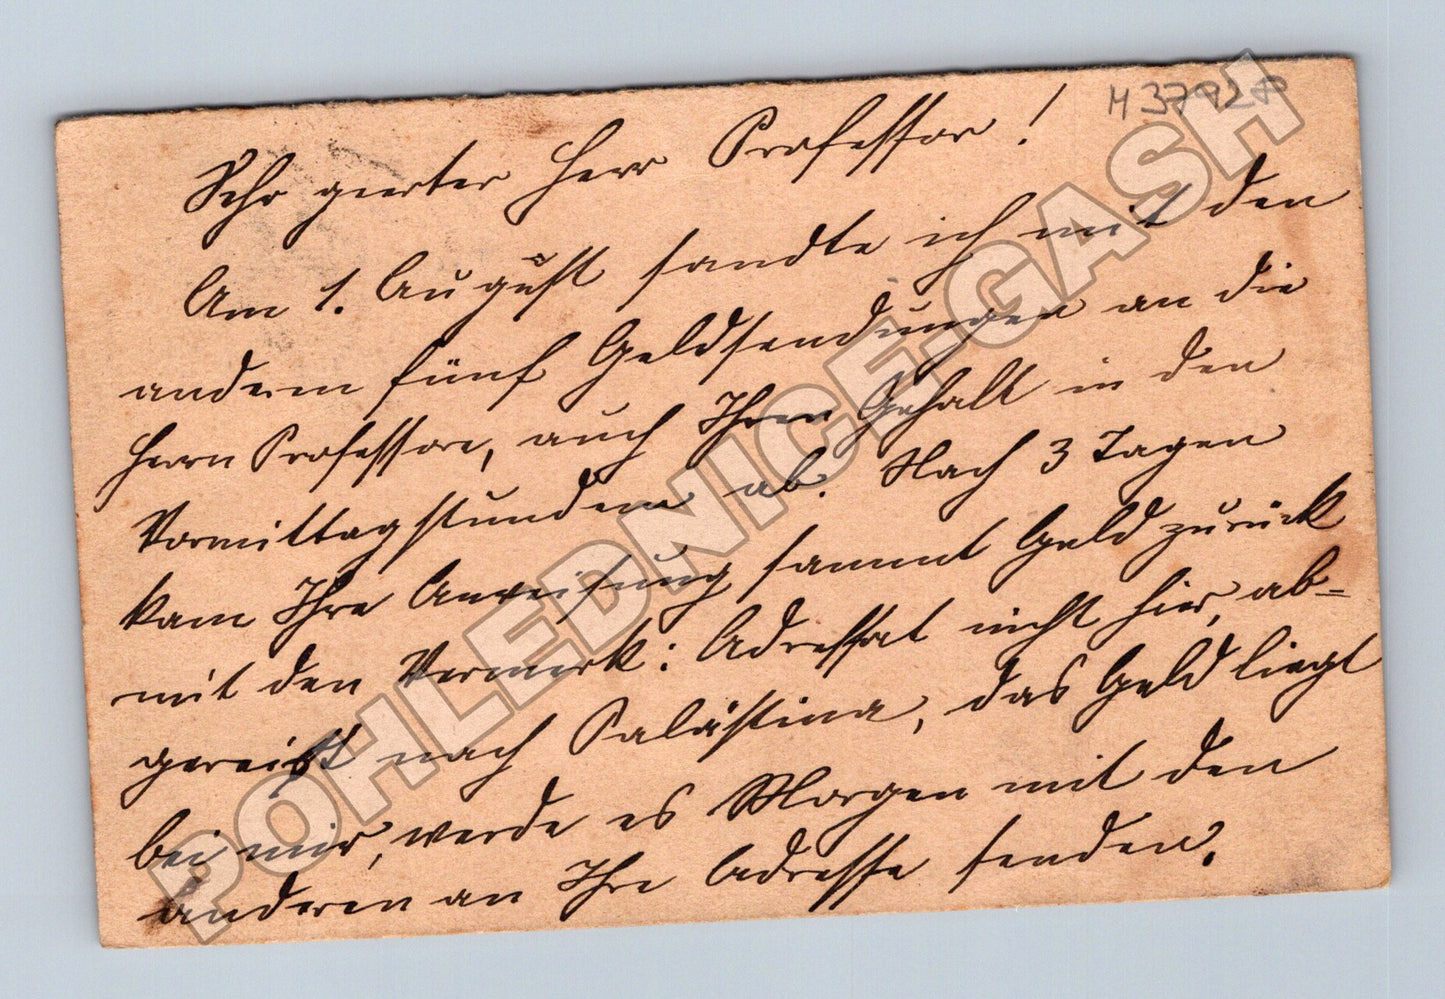 H 37928
Sehr geerter Herr Professor!
Am 1. August sandte ich mit den
andern fünf Geldsendungen an die
Herrn Professore, auch Ihren Gehalt in den
Vormittagstunden ab. Nach 3 Tagen
kam Ihre Anweisung sammt Geld zurück
mit den Vermerk: Adressat nicht hier, ab=
gereist nach Palästina, das Geld liegt
bei mir, werde es Morgen mit den
anderen an Ihre Adresse senden.
POHLEDNICE-GASH